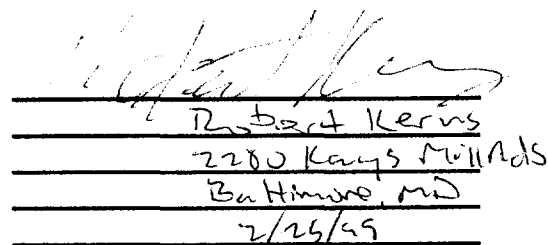 Robert Kerns
2280 Kays Mill Rds
Baltimore, MD
2/25/99